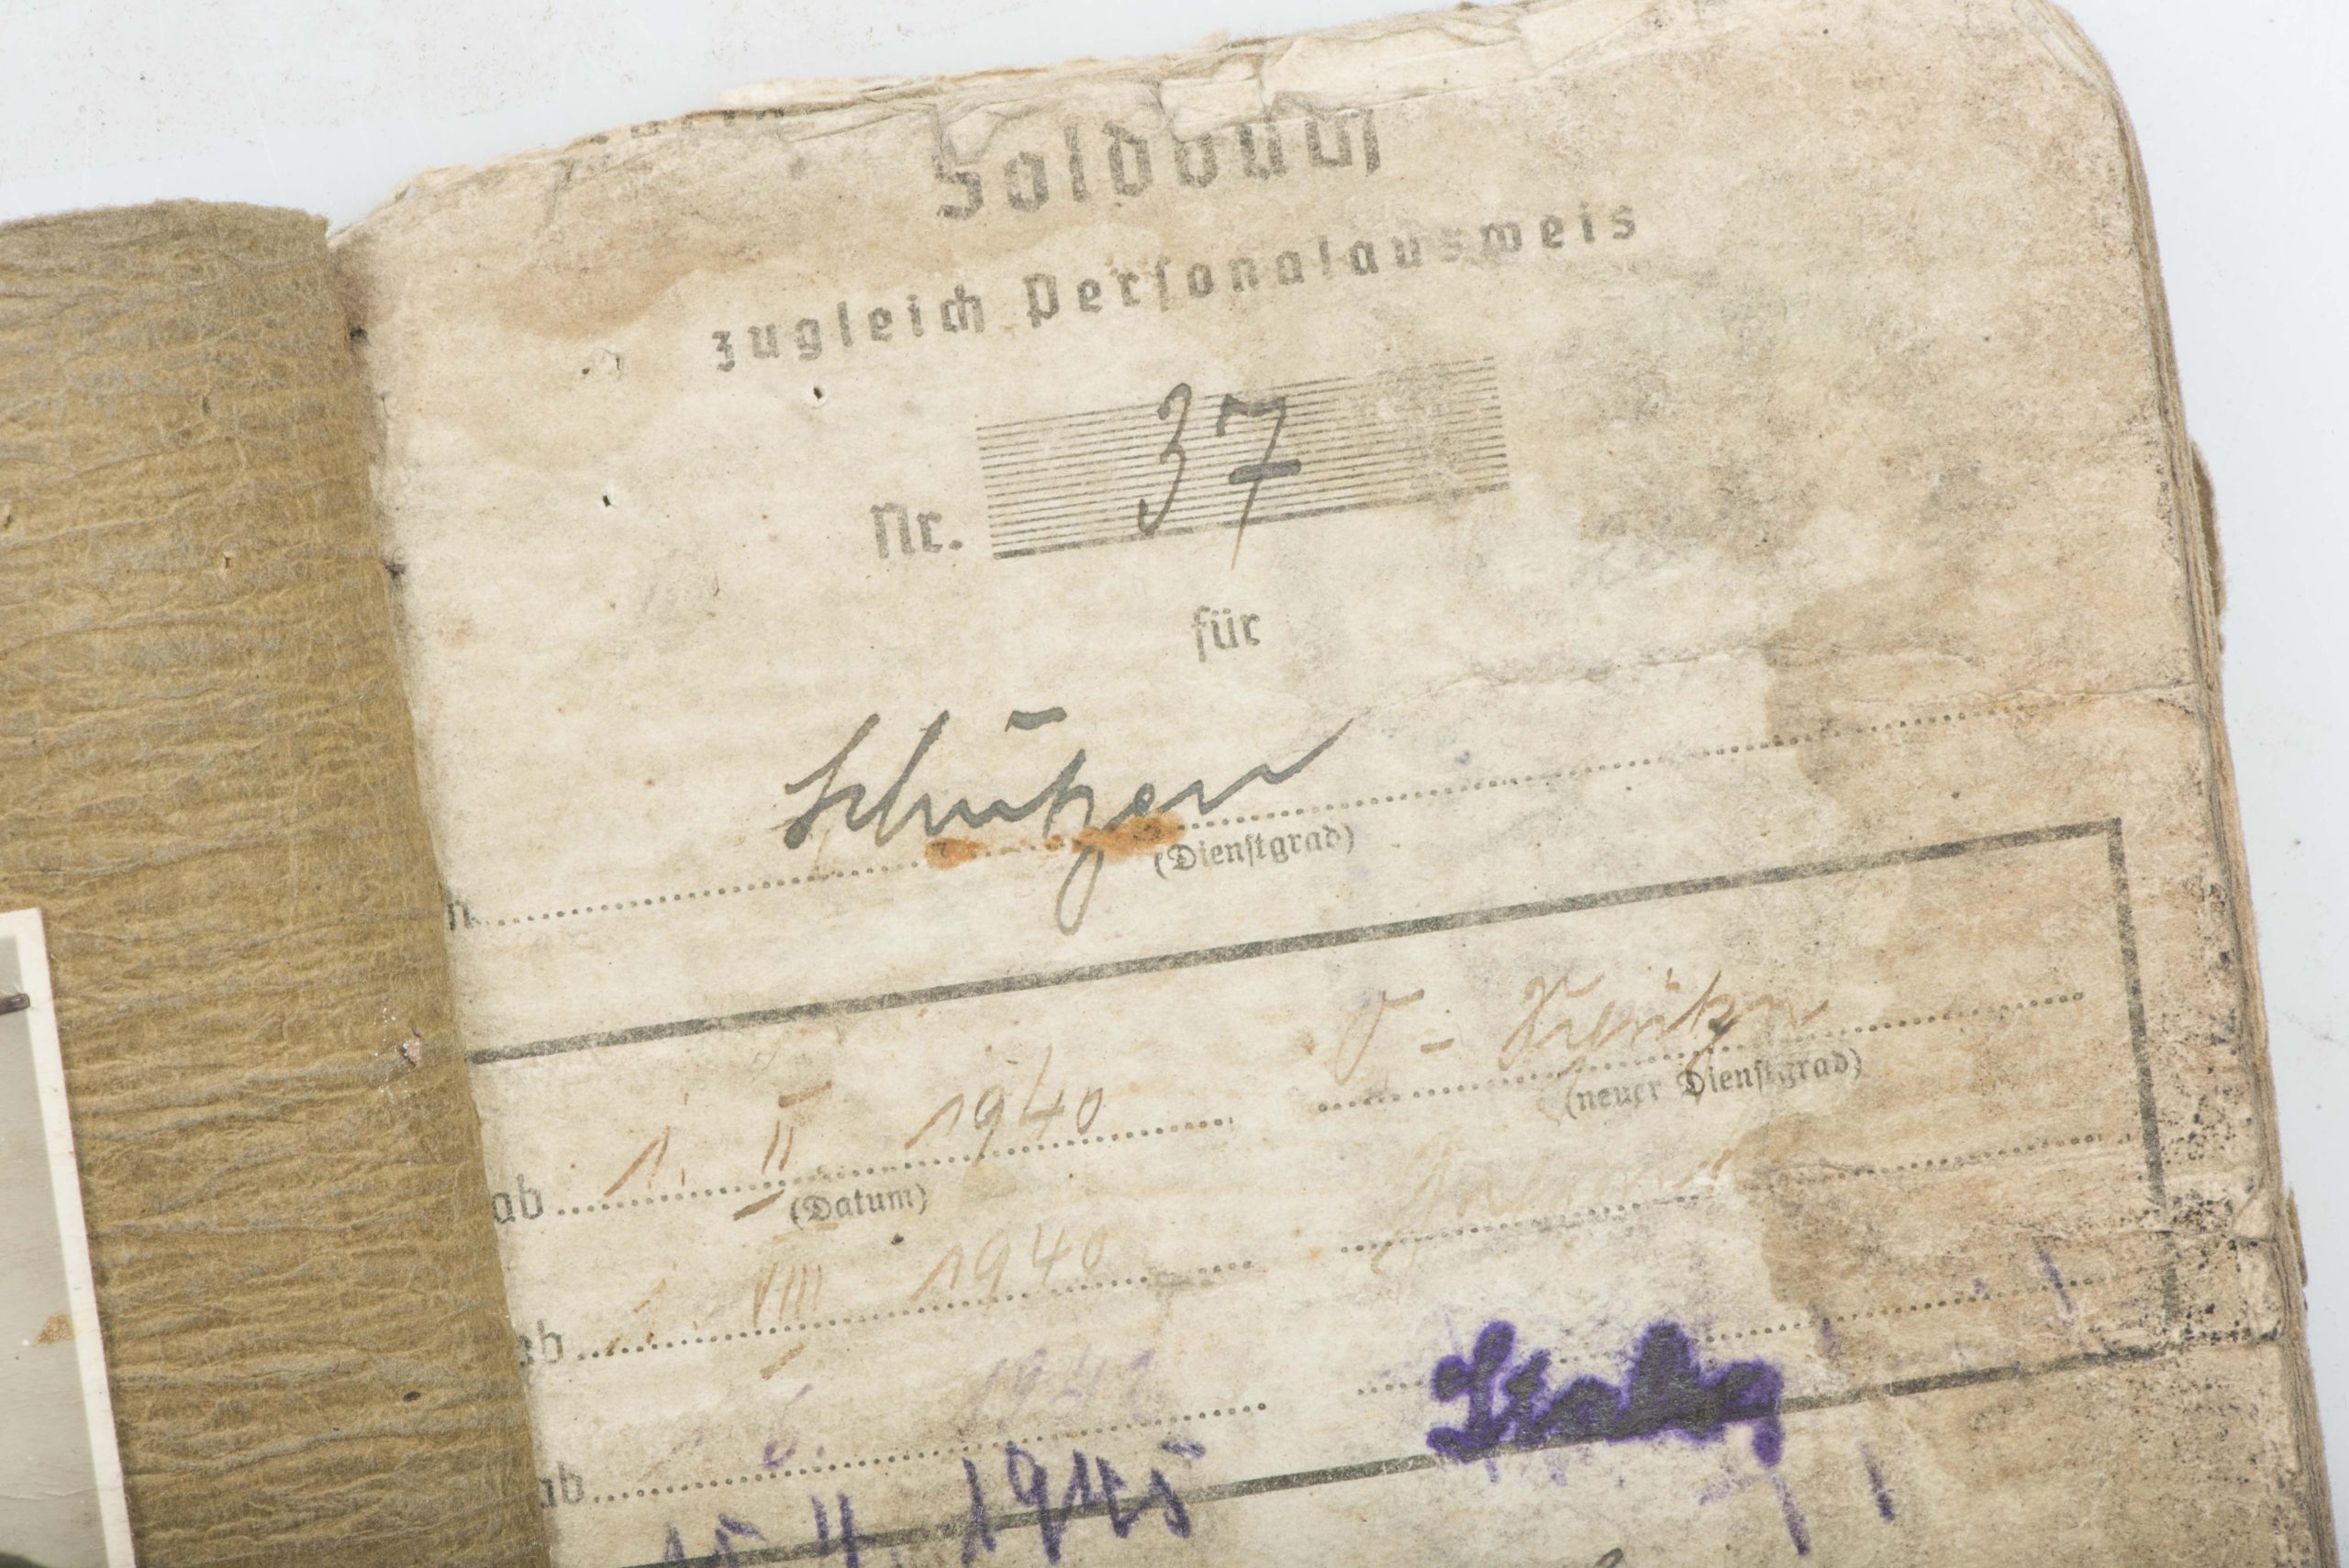 Soldbuch
zugleich Personalausweis
Nr. 37
für
Schützen
(Dienstgrad)
O-Schützen
(neuer Dienstgrad)
ab 1. II 1940
(Datum)
ab 1. VIII 1940
ab 6. 194
15 4. 1945